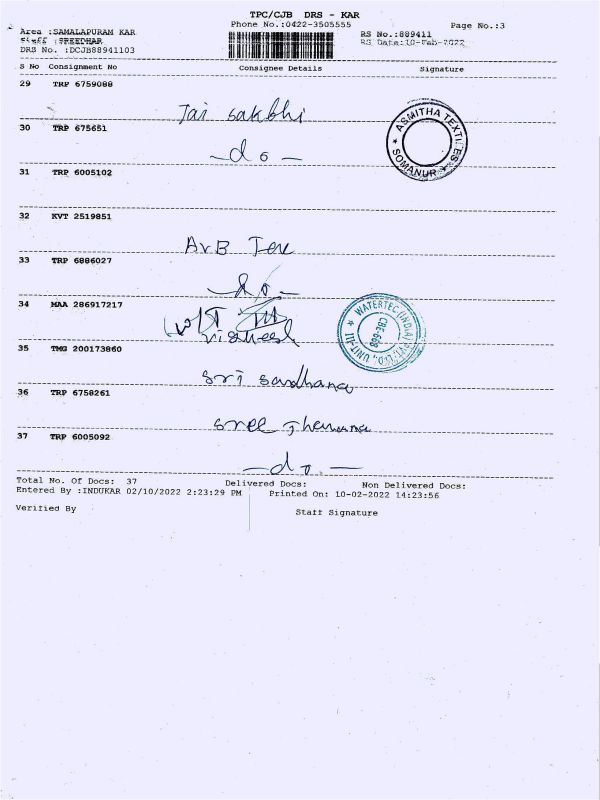 TPC/CJB DRS - KAR
Phone No.:0422-3505555
Page No.:3
Area :SAMALAPURAM KAR
RS No.:889411
Staff :SREEDHAR
RS Date:10-Feb-2022
DRS No. :DCJB88941103
S No Consignment No Consignee Details Signature
29 TRP 6759088
Jai sakthi
ASMITHA TEXTILES
SOMANUR
30 TRP 675651
- do -
31 TRP 6005102
32 KVT 2519851
AVB Tex
33 TRP 6886027
- do -
34 MAA 286917217
Vignesh
WATERTEC (INDIA) PVT. LTD., UNIT-III
CBE-668
35 TMG 200173860
Sri Sadhana
36 TRP 6758261
Sree
37 TRP 6005092
- do -
Total No. Of Docs: 37 Delivered Docs: Non Delivered Docs:
Entered By :INDUKAR 02/10/2022 2:23:29 PM Printed On: 10-02-2022 14:23:56
Verified By Staff Signature